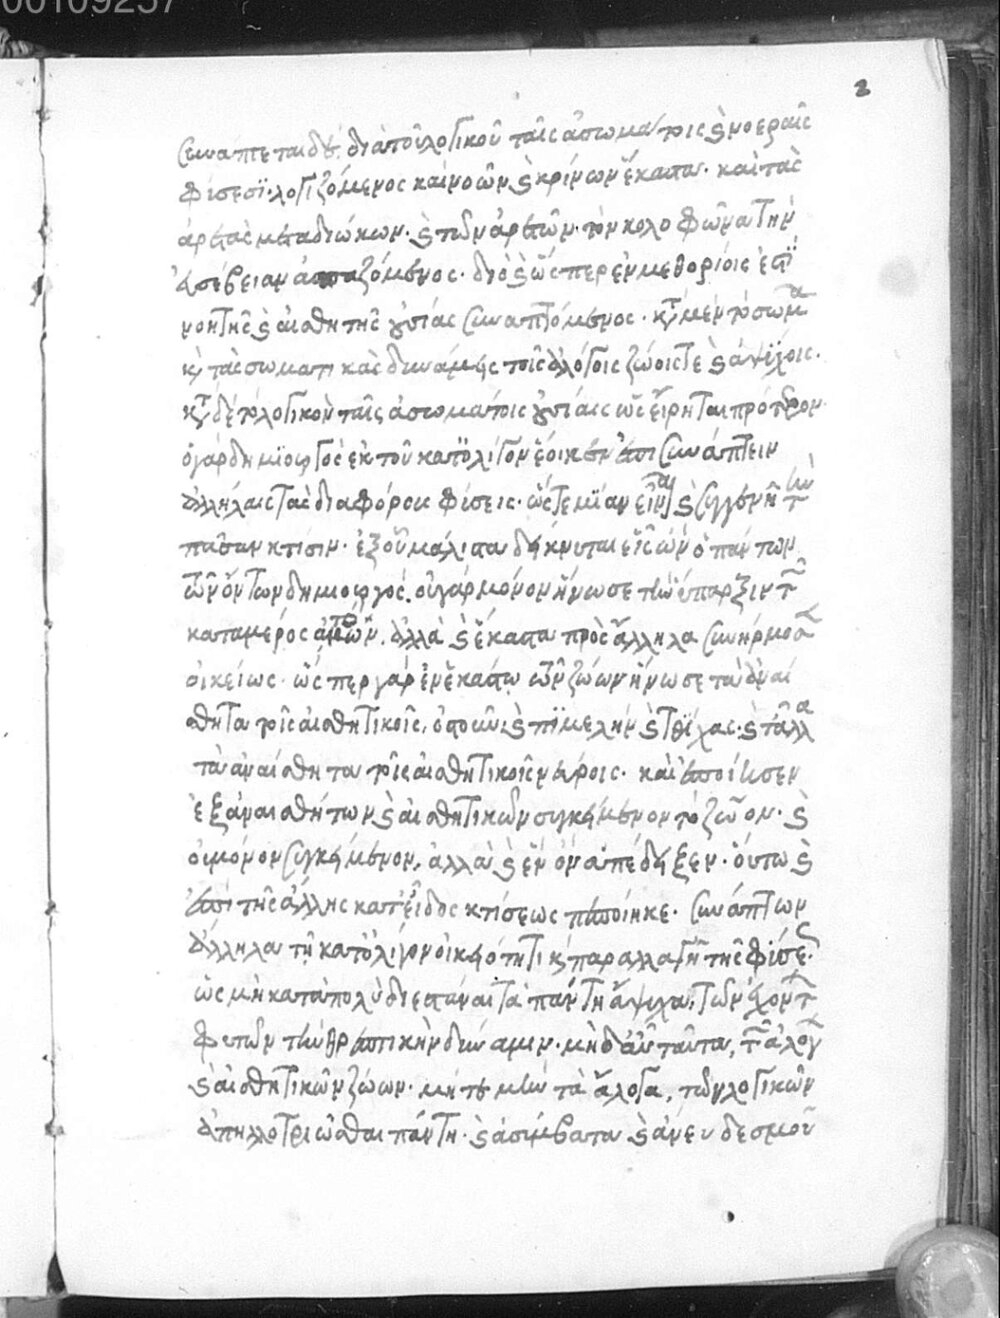 00109257
2
συνάπτεται δὲ διὰ τοῦ λογικοῦ ταῖς ἀσωμάτοις καὶ νοεραῖς
φύσεσι· λογιζόμενος καὶ νοῶν καὶ κρίνων ἕκαστα· καὶ τὰς
ἀρετὰς μεταδιώκων· καὶ τῶν ἀρετῶν τὸν κολοφῶνα τὴν
εὐσέβειαν ἀσπαζόμενος· διὸ καὶ ὥσπερ ἐν μεθορίοις ἐστὶ
νοητῆς καὶ αἰσθητῆς οὐσίας συναπτόμενος· κατὰ μὲν τὸ σῶμα
καὶ τὰς σωματικὰς δυνάμεις τοῖς ἀλόγοις ζώοις τὲ καὶ ἀψύχοις·
κατὰ δὲ τὸ λογικὸν ταῖς ἀσωμάτοις οὐσίαις ὡς εἴρηται πρότερον·
ὁ γὰρ δημιουργὸς ἐκ τοῦ κατ' ὀλίγον ἔοικεν ἐπισυνάπτειν
ἀλλήλαις τὰς διαφόρους φύσεις· ὥστε μίαν εἶναι καὶ συγγενῆ τὴν
πᾶσαν κτίσιν· ἐξ οὗ μάλιστα δείκνυται εἷς ὢν ὁ πάντων
τῶν ὄντων δημιουργός· οὐ γὰρ μόνον ἥνωσε τὴν ὕπαρξιν τῶν
κατὰ μέρος ἀτόμων, ἀλλὰ καὶ ἕκαστα πρὸς ἄλληλα συνήρμοσεν
οἰκείως· ὥσπερ γὰρ ἐν ἑκάστῳ τῶν ζώων ἥνωσε τὰ ἀναί
σθητα τοῖς αἰσθητικοῖς, ὀστοῦν καὶ πιμελὴν καὶ τρίχας καὶ τἄλλα
τὰ ἀναίσθητα τοῖς αἰσθητικοῖς νεύροις· καὶ ἐποίησεν
ἐξ ἀναισθήτων καὶ αἰσθητικῶν συγκείμενον τὸ ζῶον· καὶ
οὐ μόνον συγκείμενον, ἀλλὰ καὶ ἓν ὂν ἀπέδειξεν· οὕτω καὶ
ἐπὶ τῆς ἄλλης κατ' εἶδος κτίσεως πεποίηκε· συνάπτων
ἄλληλα τῇ κατ' ὀλίγον οἰκειότητι καὶ παραλλαγῇ τῆς φύσεως·
ὡς μὴ κατὰ πολὺ διεστάναι τὰ πάντη ἄψυχα, τῶν ἐχόντων
φυτῶν τὴν θρεπτικὴν δύναμιν· μὴ δ' αὖ ταῦτα, τῶν ἀλόγων
καὶ αἰσθητικῶν ζώων· μήτε μὴν τὰ ἄλογα, τῶν λογικῶν
ἀπηλλοτριῶσθαι πάντη· καὶ ἀσύμβατα καὶ ἄνευ δεσμοῦ